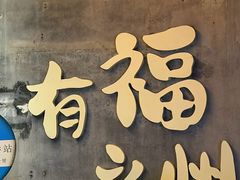 有福
州
站